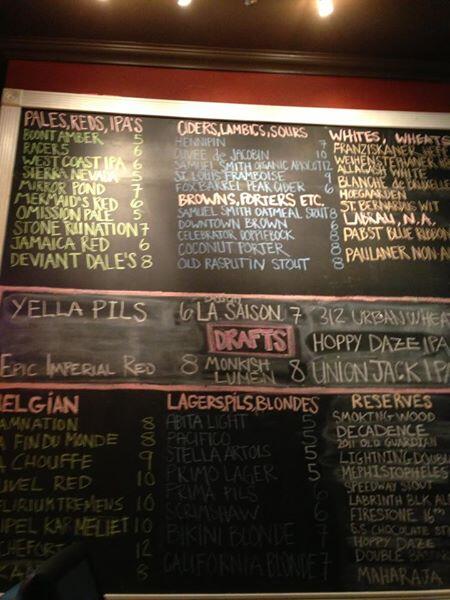 PALES, REDS, IPA'S
BOONT AMBER 5
RACER 5 6
WEST COAST IPA 6
SIERRA NEVADA 5
MIRROR POND 7
MERMAID'S RED 6
OMISSION PALE 5
STONE RUINATION 7
JAMAICA RED 6
DEVIANT DALE'S 8
CIDERS, LAMBICS, SOURS
HENNIPIN 7
CUVEE de JACOBIN 10
SAMUEL SMITH ORGANIC APRICOT 12
ST. LOUIS FRAMBOISE 9
FOX BARREL PEAR CIDER 6
BROWNS, PORTERS ETC.
SAMUEL SMITH OATMEAL STOUT 8
DOWNTOWN BROWN 6
CELEBRATOR DOPPELBOCK
COCONUT PORTER
OLD RASPUTIN STOUT 8
WHITES, WHEATS
FRANZISKANER
WEIHENSTEPHANER
ALLAGASH WHITE
BLANCHE de BRUXELLE
HOEGAARDEN
ST. BERNARDUS WIT
N.A.
PABST BLUE RIBBON
PAULANER NON-A
YELLA PILS 6
LA SAISON 7
312 URBAN WHEA
DRAFTS
HOPPY DAZE IPA
EPIC IMPERIAL RED 8
MONKISH LUMEN 8
UNION JACK IPA
ELGIAN
AMNATION 8
A FIN DU MONDE 8
A CHOUFFE 9
UVEL RED 10
LIRIUM TREMENS 10
IPEL KARMELIET 10
CHEFORT 12
8
LAGERS, PILS, BLONDES
ABITA LIGHT 5
PACIFICO 5
STELLA ARTOIS 5
PRIMO LAGER 5
PRIMA PILS 6
SCRIMSHAW 6
BIKINI BLONDE 7
CALIFORNIA BLONDE 7
RESERVES
SMOKING WOOD
DECADENCE
2011 OLD GUARDIAN
LIGHTNING DOUBL
MEPHISTOPHELES
SPEEDWAY STOUT
LABRINTH BLK AL
FIRESTONE 16TH
S.S. CHOCOLATE ST
HOPPY DAZE
DOUBLE BA
MAHARAJA